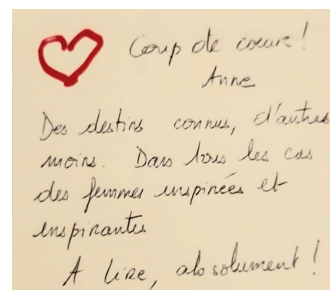 Coup de cœur !
Anne
Des destins connus, d'autres
moins. Dans tous les cas
des femmes inspirées et
inspirantes
A lire, absolument !